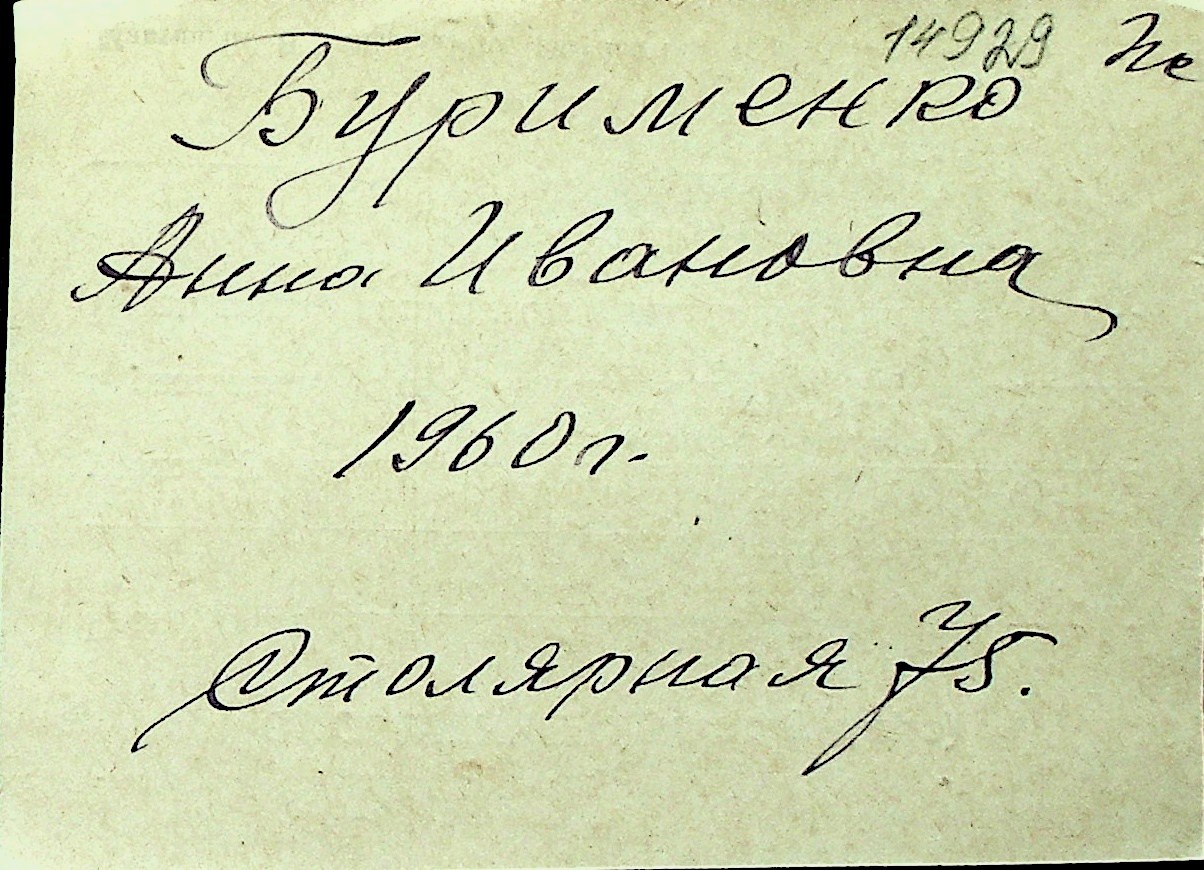 14929
Буrименко
Анна Ивановна
1960 г.
Столярная 75.